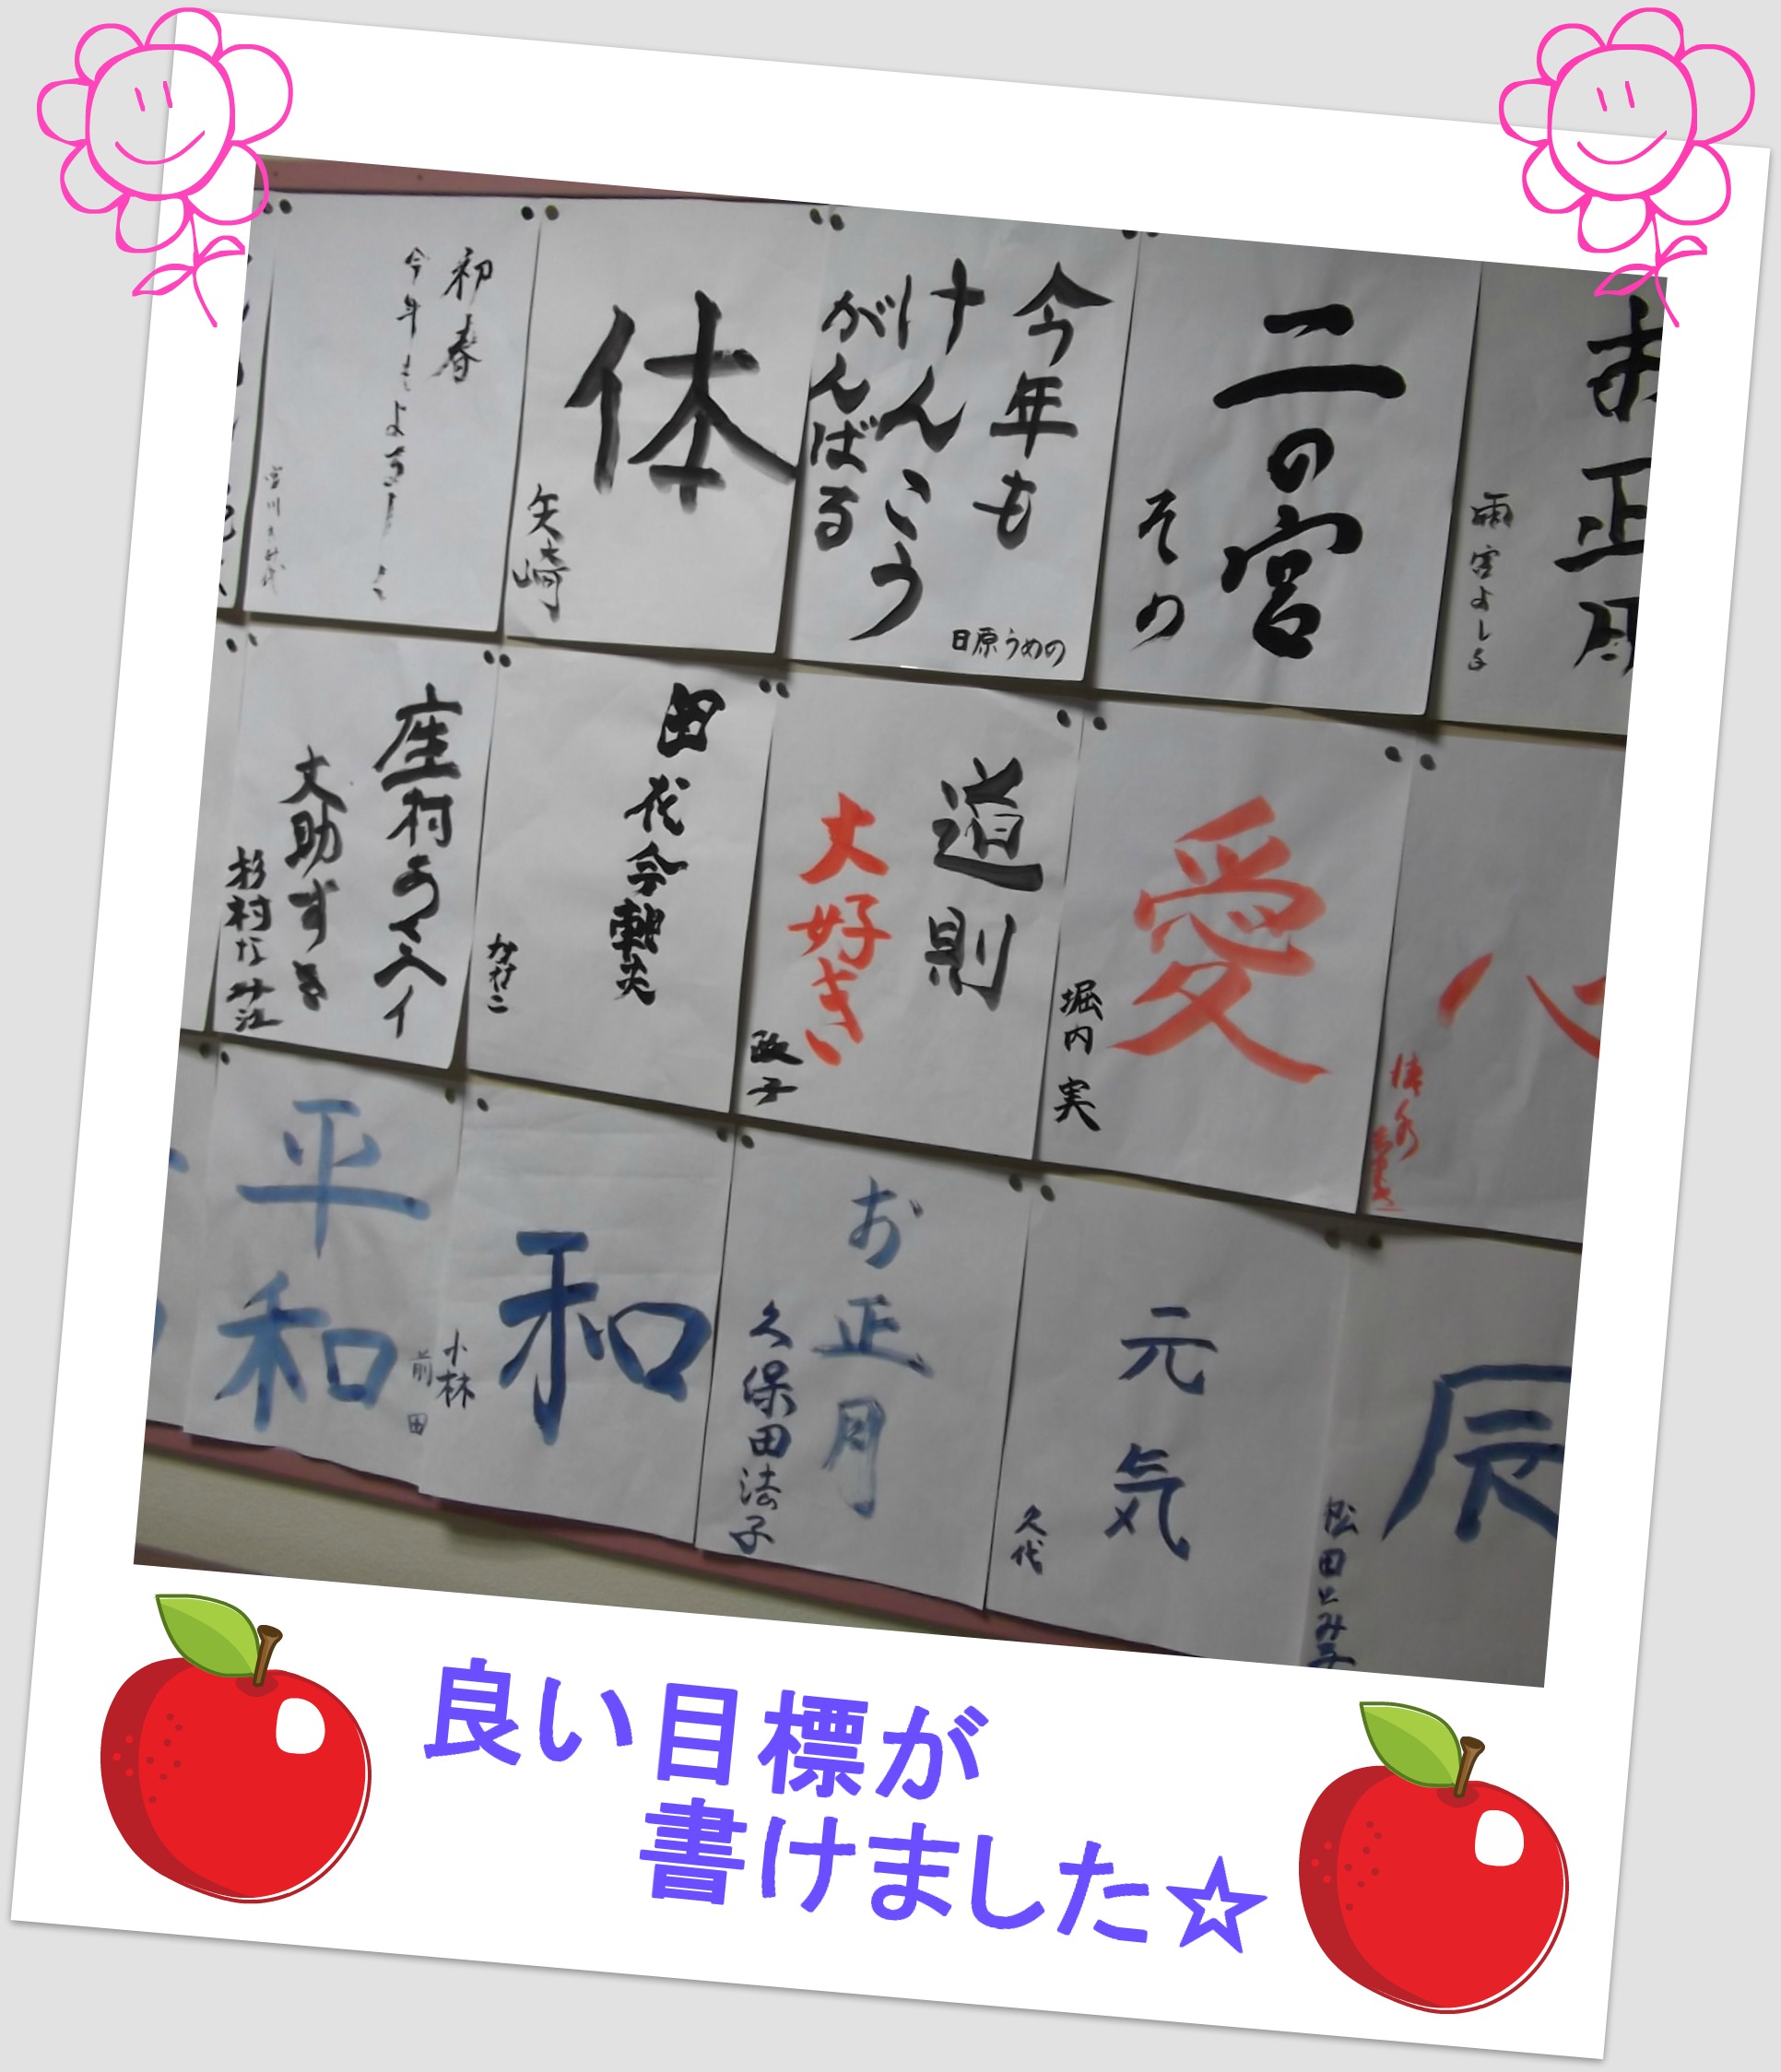 初春
今年もよろしく
体
矢崎
今年も
けんこう
がんばる
日原うめの
二の宮
その
お正月
雨宮よし子
座村
大助ずき
杉村
道則
大好き
政子
愛
堀内 実
心
平和
前田
和
小林
お正月
久保田法子
元気
久代
辰
松田とみ子
良い目標が
書けました☆